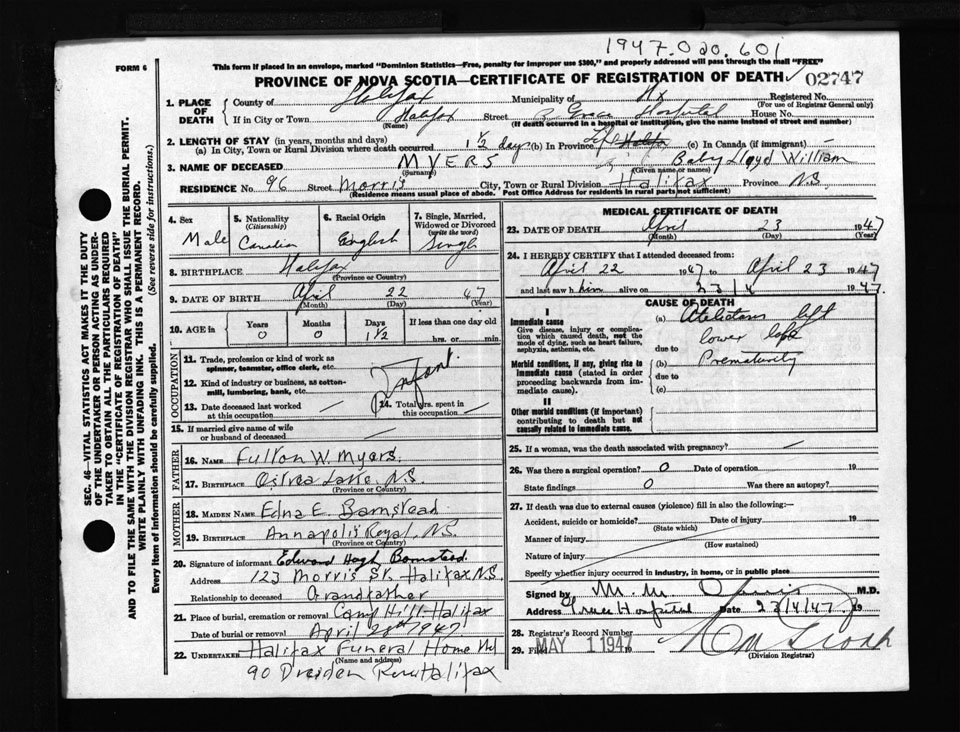 1947.020.601
FORM 6
This form if placed in an envelope, marked "Dominion Statistics—Free, penalty for improper use $300," and properly addressed will pass through the mail "FREE"
PROVINCE OF NOVA SCOTIA—CERTIFICATE OF REGISTRATION OF DEATH
02747
SEC. 46—VITAL STATISTICS ACT MAKES IT THE DUTY
OF THE UNDERTAKER OR PERSON ACTING AS UNDER-
TAKER TO OBTAIN ALL THE PARTICULARS REQUIRED
IN THE "CERTIFICATE OF REGISTRATION OF DEATH"
AND TO FILE THE SAME WITH THE DIVISION REGISTRAR WHO SHALL ISSUE THE BURIAL PERMIT.
WRITE PLAINLY WITH UNFADING INK. THIS IS A PERMANENT RECORD.
Every item of information should be carefully supplied. (See reverse side for instructions.)
1. PLACE OF DEATH
County of Halifax Municipality of Hx Registered No.
(For use of Registrar General only)
If in City or Town Halifax Street Grace Hospital House No.
(Name) (If death occurred in a hospital or institution, give the name instead of street and number)
2. LENGTH OF STAY (in years, months and days)
(a) In City, Town or Rural Division where death occurred 1 1/2 days (b) In Province Life (c) In Canada (if immigrant)
3. NAME OF DECEASED MYERS Baby Lloyd William
(Surname) (Given name or names)
RESIDENCE No. 96 Street Morris City, Town or Rural Division Halifax Province N.S.
(Residence means usual place of abode. Post Office Address for residents in rural parts not sufficient)
4. Sex
Male
5. Nationality
(Citizenship)
Canadian
6. Racial Origin
English
7. Single, Married, Widowed or Divorced
(write the word)
Single
8. BIRTHPLACE Halifax
(Province or Country)
9. DATE OF BIRTH April 22 47
(Month) (Day) (Year)
10. AGE in
Years Months Days If less than one day old
0 0 1 1/2 hrs. or min.
OCCUPATION
11. Trade, profession or kind of work as
spinner, teamster, office clerk, etc.
12. Kind of industry or business, as cotton-
mill, lumbering, bank, etc.
Infant
13. Date deceased last worked
at this occupation —
14. Total yrs. spent in
this occupation —
15. If married give name of wife
or husband of deceased —
FATHER
16. NAME Fulton W. Myers
17. BIRTHPLACE Ostrea Lake, N.S.
(Province or Country)
MOTHER
18. MAIDEN NAME Edna E. Bamstead
19. BIRTHPLACE Annapolis Royal, N.S.
(Province or Country)
20. Signature of informant Edward Hugh Bamstead
Address 123 Morris St. Halifax N.S.
Relationship to deceased Grandfather
21. Place of burial, cremation or removal Camp Hill-Halifax
Date of burial or removal April 1947
22. UNDERTAKER Halifax Funeral Home
(Name and address)
90 Dresden Row Halifax
MEDICAL CERTIFICATE OF DEATH
23. DATE OF DEATH April 23 1947
(Month) (Day) (Year)
24. I HEREBY CERTIFY that I attended deceased from:
April 22 1947 to April 23 1947
and last saw him alive on 23/4 1947.
CAUSE OF DEATH
I
Immediate cause
Give disease, injury or complica-
tion which caused death, not the
mode of dying, such as heart failure,
asphyxia, asthenia, etc.
(a) left
lower
due to
Morbid conditions, if any, giving rise to
immediate cause (stated in order
proceeding backwards from im-
mediate cause).
(b) Prematurity
due to
(c)
II
Other morbid conditions (if important)
contributing to death but not
causally related to immediate cause.
25. If a woman, was the death associated with pregnancy? —
26. Was there a surgical operation? 0 Date of operation 19
State findings 0 Was there an autopsy?
27. If death was due to external causes (violence) fill in also the following:—
Accident, suicide or homicide? Date of injury 19
(State which)
Manner of injury
(How sustained)
Nature of injury
Specify whether injury occurred in industry, in home, or in public place
Signed by M. M. M.D.
Address Grace Hospital Date 23/4/47. 19
28. Registrar's Record Number
29. Filed MAY 1 1947
(Division Registrar)